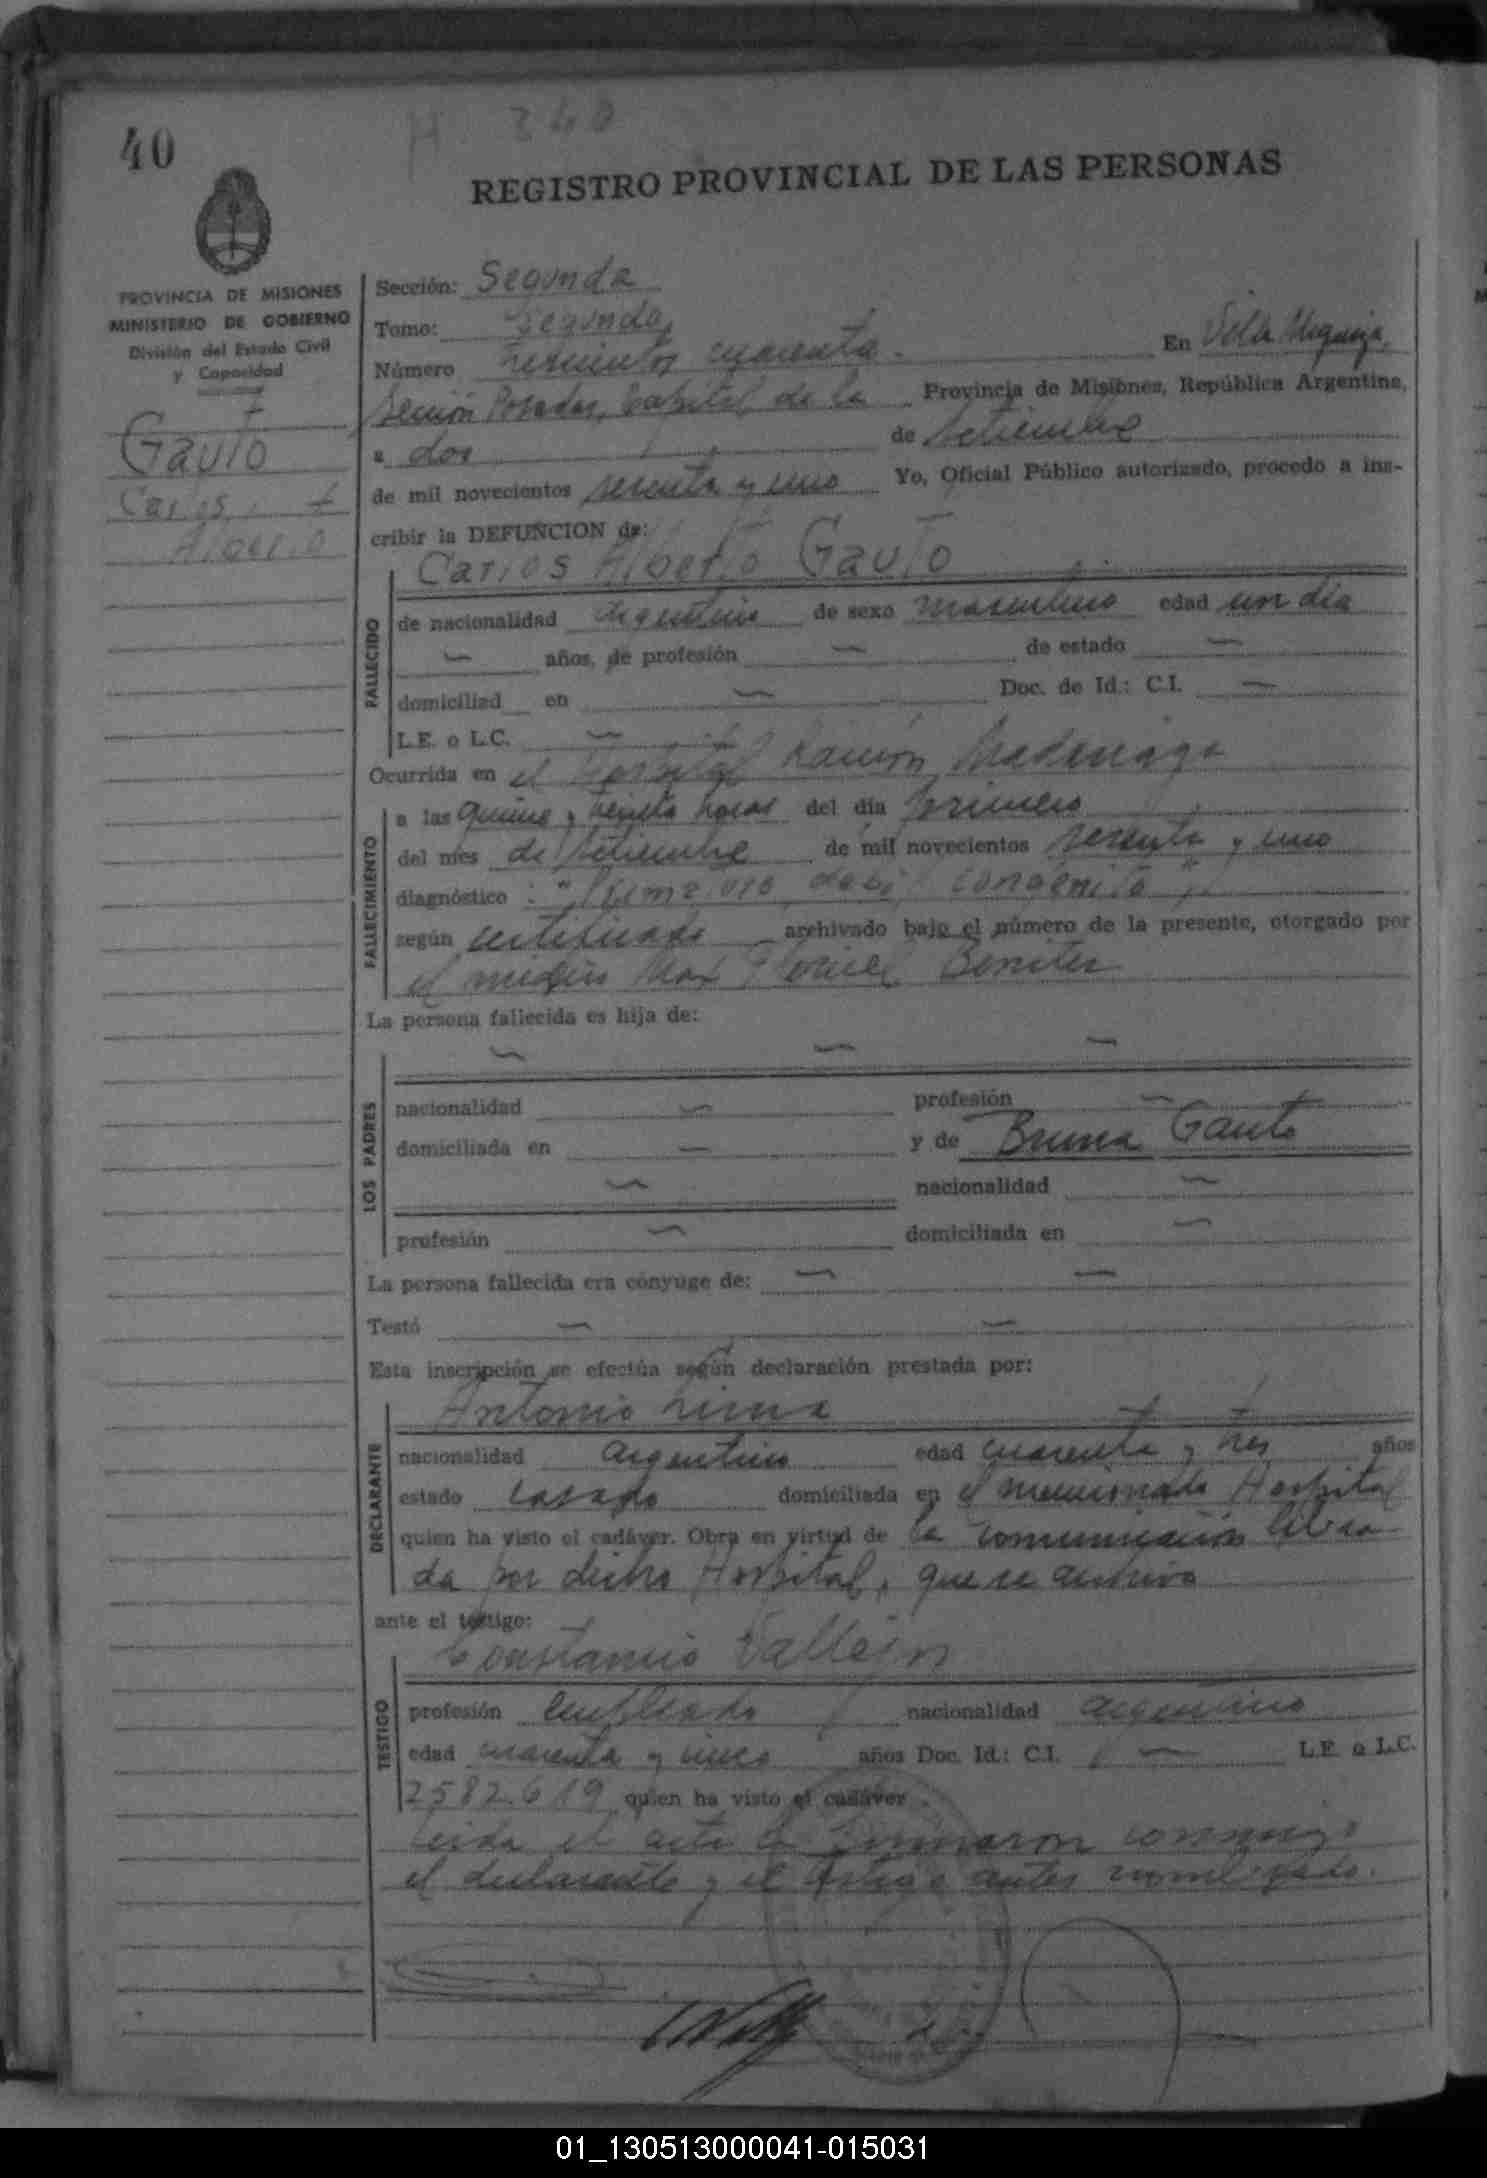 40
H 340
REGISTRO PROVINCIAL DE LAS PERSONAS
PROVINCIA DE MISIONES
MINISTERIO DE GOBIERNO
División del Estado Civil
y Capacidad
Gauto
Carlos
Alberto
Sección: Segunda
Tomo: Segundo
Número trescientos cuarenta. En Villa Urquiza,
Sección Posadas, Capital de la Provincia de Misiones, República Argentina,
a dos de setiembre
de mil novecientos sesenta y uno Yo, Oficial Público autorizado, procedo a ins-
cribir la DEFUNCION de:
Carlos Alberto Gauto
FALLECIDO
de nacionalidad argentino de sexo masculino edad un día
— años, de profesión — de estado —
domiciliad en — Doc. de Id.: C.I. —
L.E. o L.C. —
Ocurrida en el Hospital Ramón Madariaga
FALLECIMIENTO
a las quince y treinta horas del día primero
del mes de setiembre de mil novecientos sesenta y uno
diagnóstico : "Prematuro debil congenito"
según certificado archivado bajo el número de la presente, otorgado por
el médico Benitez
La persona fallecida es hija de:
— — —
LOS PADRES
nacionalidad — profesión —
domiciliada en — y de Bruna Gauto
— nacionalidad —
profesión — domiciliada en —
La persona fallecida era cónyuge de: — —
Testó — —
Esta inscripción se efectúa según declaración prestada por:
Antonio Lima
DECLARANTE
nacionalidad argentino edad cuarenta y tres años
estado casado domiciliada en el mencionado Hospital
quien ha visto el cadáver. Obra en virtud de la comunicación libra-
da por dicho Hospital, que se archiva
ante el testigo:
Constancio Vallejos
TESTIGO
profesión empleado nacionalidad argentino
edad cuarenta y cinco años Doc. Id.: C.I. — L.E. o L.C.
2582.619 quien ha visto el cadáver.
Leida el acta la firmaron conmigo
el declarante y el testigo antes nombrado.
01_130513000041-015031